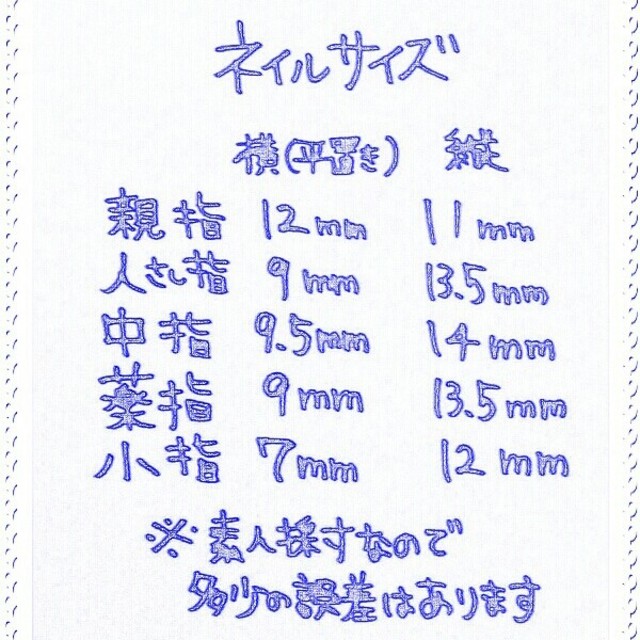 ネイルサイズ
横(平置き) 縦
親指 12mm 11mm
人さし指 9mm 13.5mm
中指 9.5mm 14mm
薬指 9mm 13.5mm
小指 7mm 12mm
※素人採寸なので
多少の誤差はあります